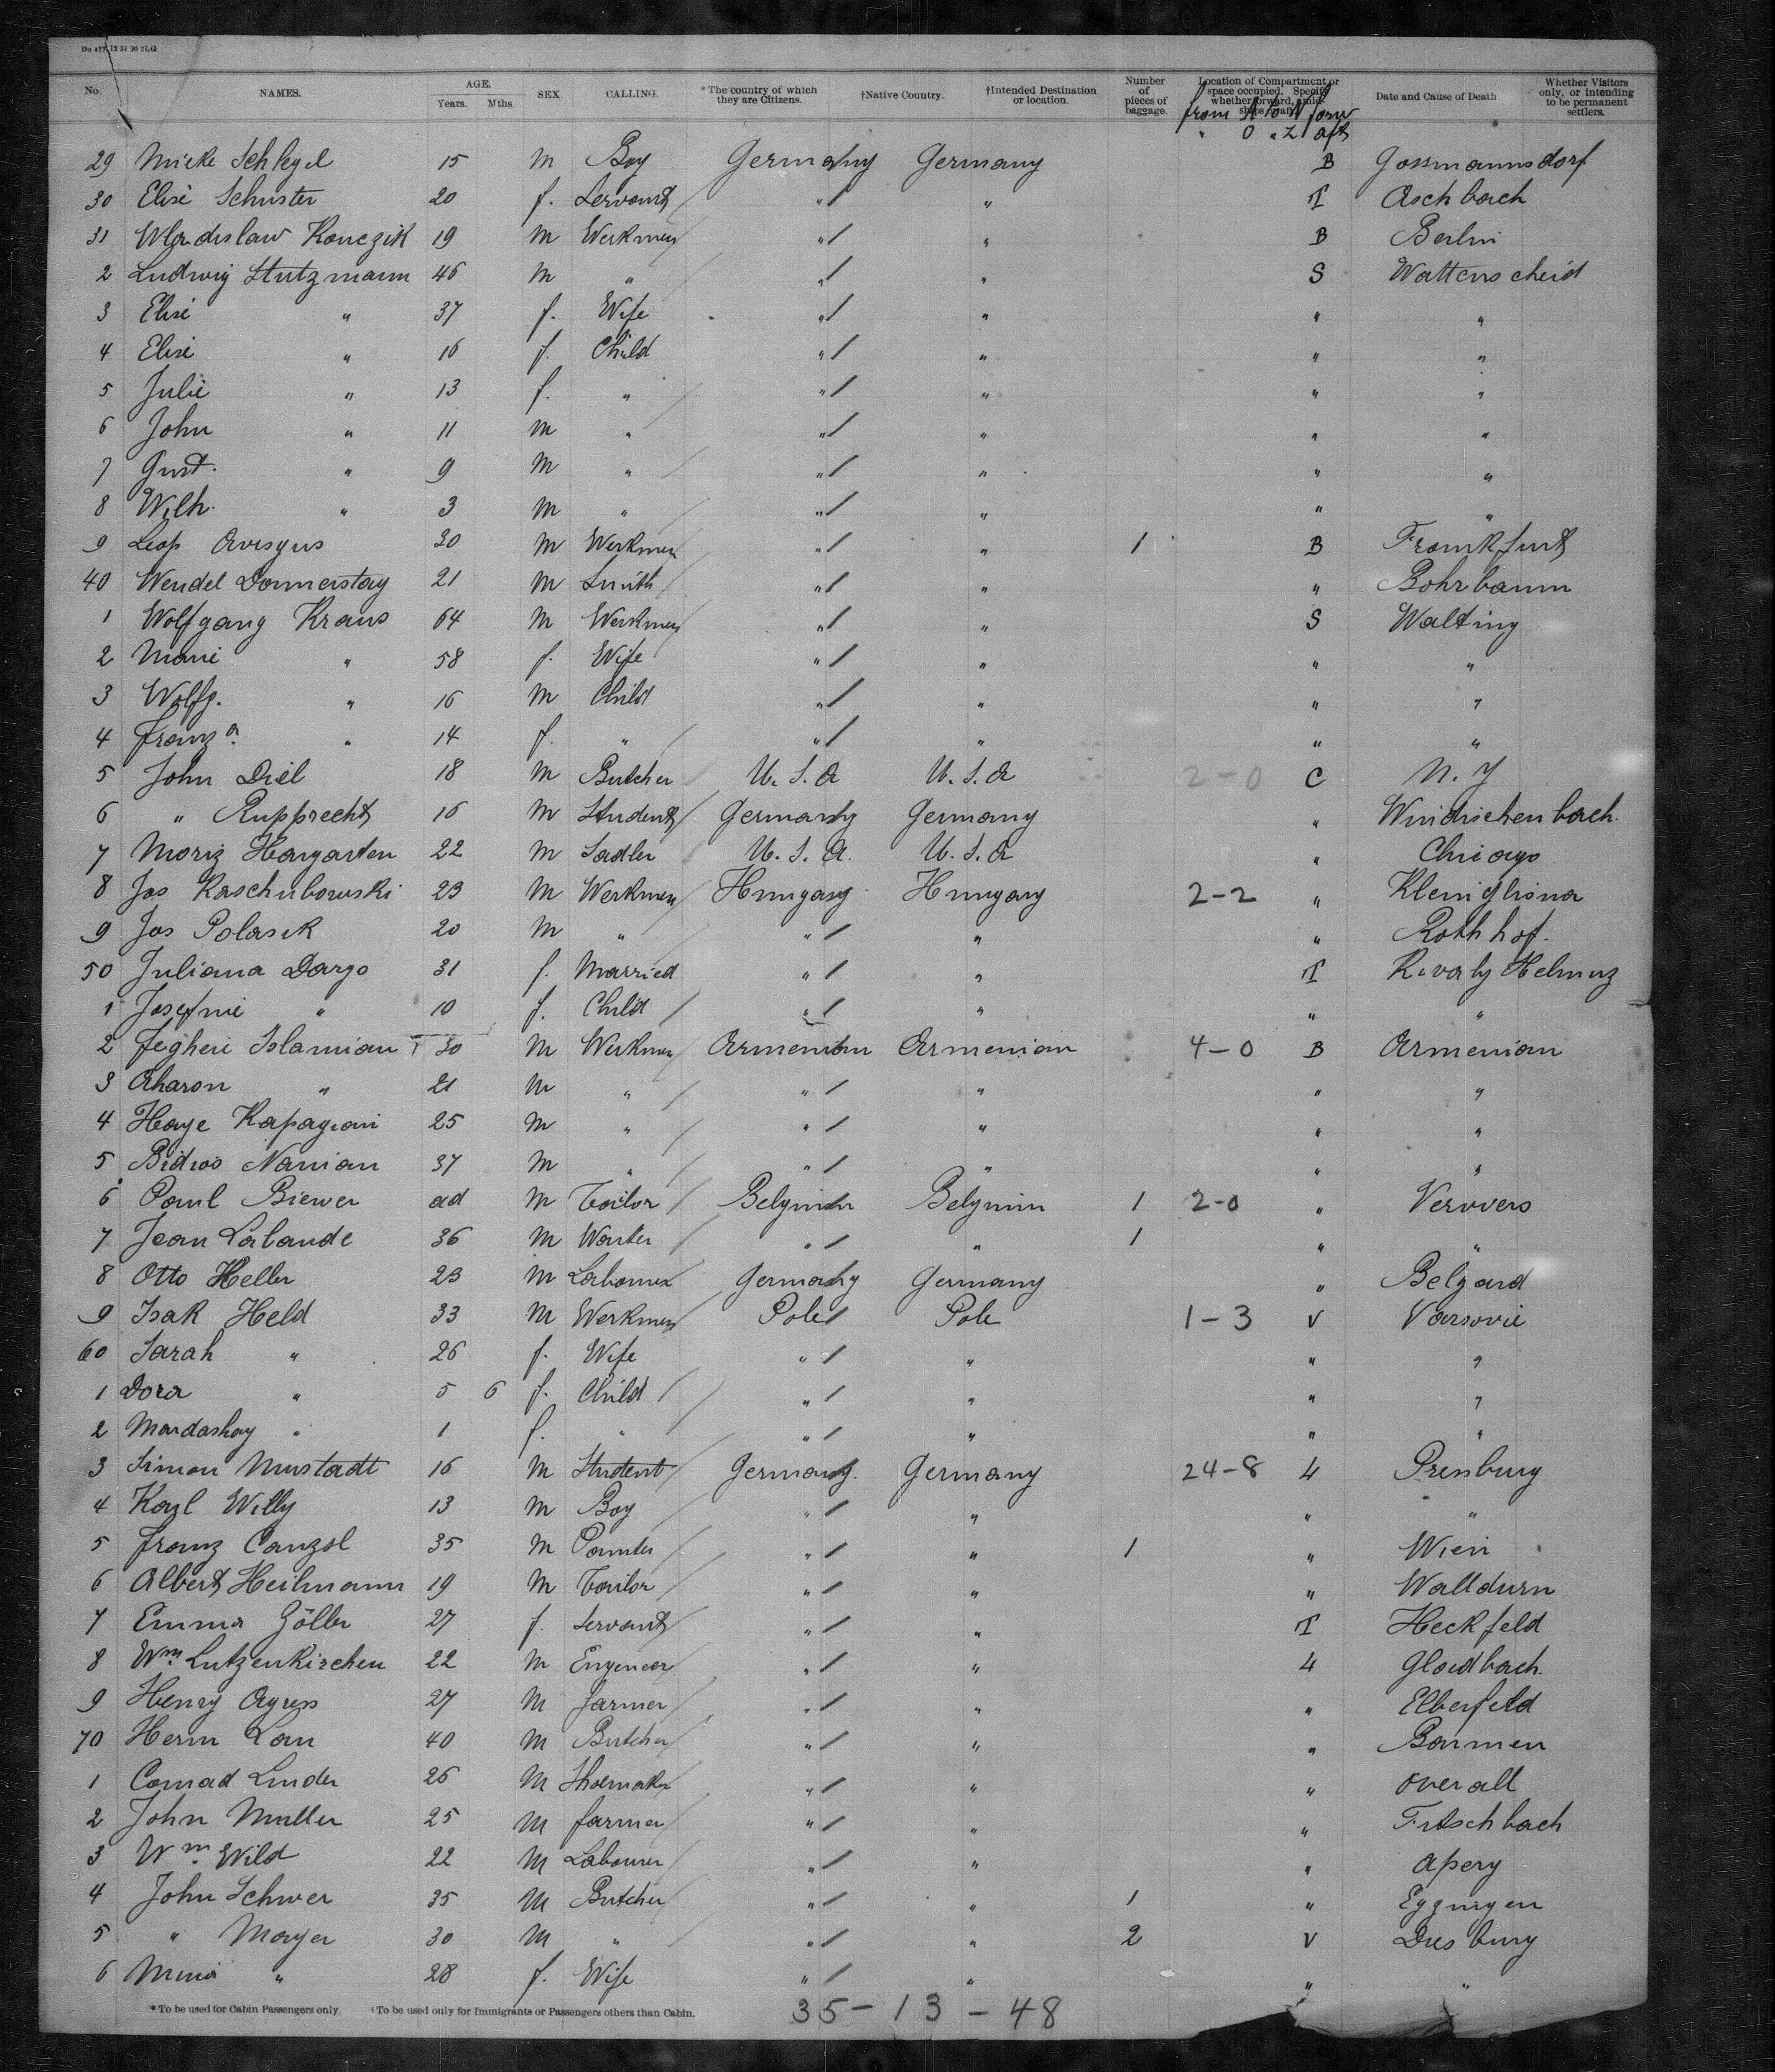 No. NAMES. AGE. Years. Mths. SEX. CALLING. *The country of which they are Citizens. †Native Country. †Intended Destination or location. Number of pieces of baggage. Location of Compartment or space occupied. Specify whether forward, Date and Cause of Death. Whether Visitors only, or intending to be permanent settlers.
from A to N forw
" O " Z aft
29 Mieke Schlegel 15 m Boy Germany Germany B Gossmannsdorf
30 Elise Schuster 20 f. Servant " " T Aschbach
31 Wladislaw Konczik 19 m Werkmen " " B Berlin
2 Ludwig Stutzmann 46 m " " " S Wattenscheid
3 Elise " 37 f. Wife " " " "
4 Elise " 16 f. Child " " " "
5 Julie " 13 f. " " " " "
6 John " 11 m " " " " "
7 Gust. " 9 m " " " " "
8 Wilh. " 3 m " " " " "
9 Leop 30 m Werkmen " " 1 B Frankfurt
40 Wendel Donnerstag 21 m Smith " " " Bohrbaum
1 Wolfgang Kraus 64 m Werkmen " " S Walting
2 Marie " 58 f. Wife " " " "
3 Wolfg. " 16 m Child " " " "
4 Franz a. " 14 f. " " " " "
5 John Diel 18 m Butcher U.S.A U.S.A 2-0 C N.Y
6 " Rupprecht 16 m Student Germany Germany " Windischenbach.
7 Moriz Hargarten 22 m Sadler U.S.A. U.S.A " Chicago
8 Jos Kaschubowski 23 m Werkmen Hungary Hungary 2-2 "
9 Jos Polasek 20 m " " " " Rothhof.
50 Juliana Dargo 31 f. Married " " T
1 Josefine " 10 f. Child " " " "
2 Jegheri Islamian 30 m Werkmen Armenian Armenian 4-0 B Armenian
3 Aharon " 21 m " " " " "
4 Haye Kapagian 25 m " " " " "
5 Bidros Nanian 37 m " " " " "
6 Paul Biewer ad m Tailor Belgium Belgium 1 2-0 " Vervvers
7 Jean Lalande 36 m Waiter " " 1 " "
8 Otto Heller 23 m Labourer Germany Germany " Belgard
9 Isak Held 33 m Werkmen Pole Pole 1-3 V Varsovie
60 Sarah " 26 f. Wife " " " "
1 Dora " 5 6 f. Child " " " "
2 Mardashay " 1 f. " " " " "
3 Simon Neustadt 16 m Student Germany. Germany 24-8 4 Pressburg
4 Karl Willy 13 m Boy " " " "
5 Franz Canzol 35 m Painter " " 1 " Wien
6 Albert Heilmann 19 m Tailor " " " Walldurn
7 Emma Zöller 27 f. Servant " " T Heckfeld
8 Wm. Lutzenkirchen 22 m Engeneer " " 4 Gladbach.
9 Henry Agress 27 m Farmer " " " Elberfeld
70 Herm Lau 40 m Butcher " " " Barmen
1 Conrad Linder 26 m Shoemaker " " " Overall
2 John Muller 25 m farmer " " " Fitschbach
3 Wm. Wild 22 m Labourer " " " Apery
4 John Schwer 35 m Butcher " " 1 " Eggingen
5 " Mayer 30 m " " " 2 V Duesburg
6 Minna " 28 f. Wife " " " "
*To be used for Cabin Passengers only. †To be used only for Immigrants or Passengers others than Cabin.
35-13-48